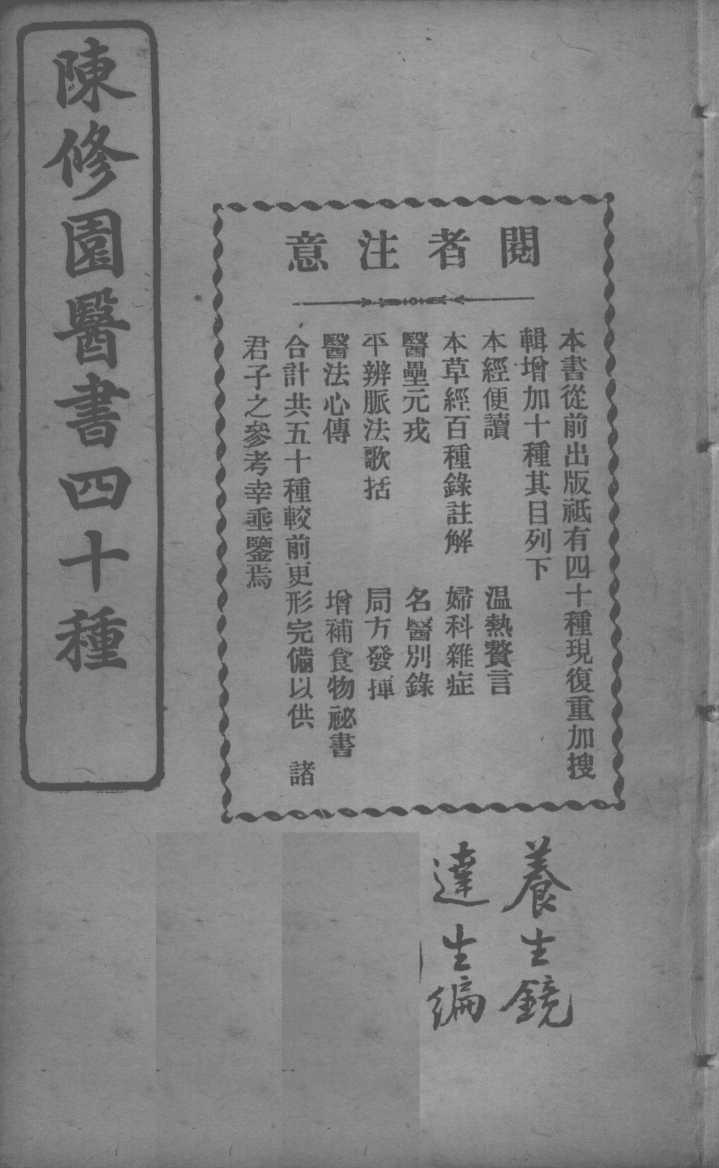 陳修園醫書四十種
閱者注意
本書從前出版祗有四十種現復重加搜
輯增加十種其目列下
本經便讀　溫熱贅言
本草經百種錄註解　婦科雜症
醫壘元戎　名醫別錄
平辨脈法歌括　局方發揮
醫法心傳　增補食物祕書
合計共五十種較前更形完備以供　諸
君子之參考幸垂鑒焉
養生鏡
達生編